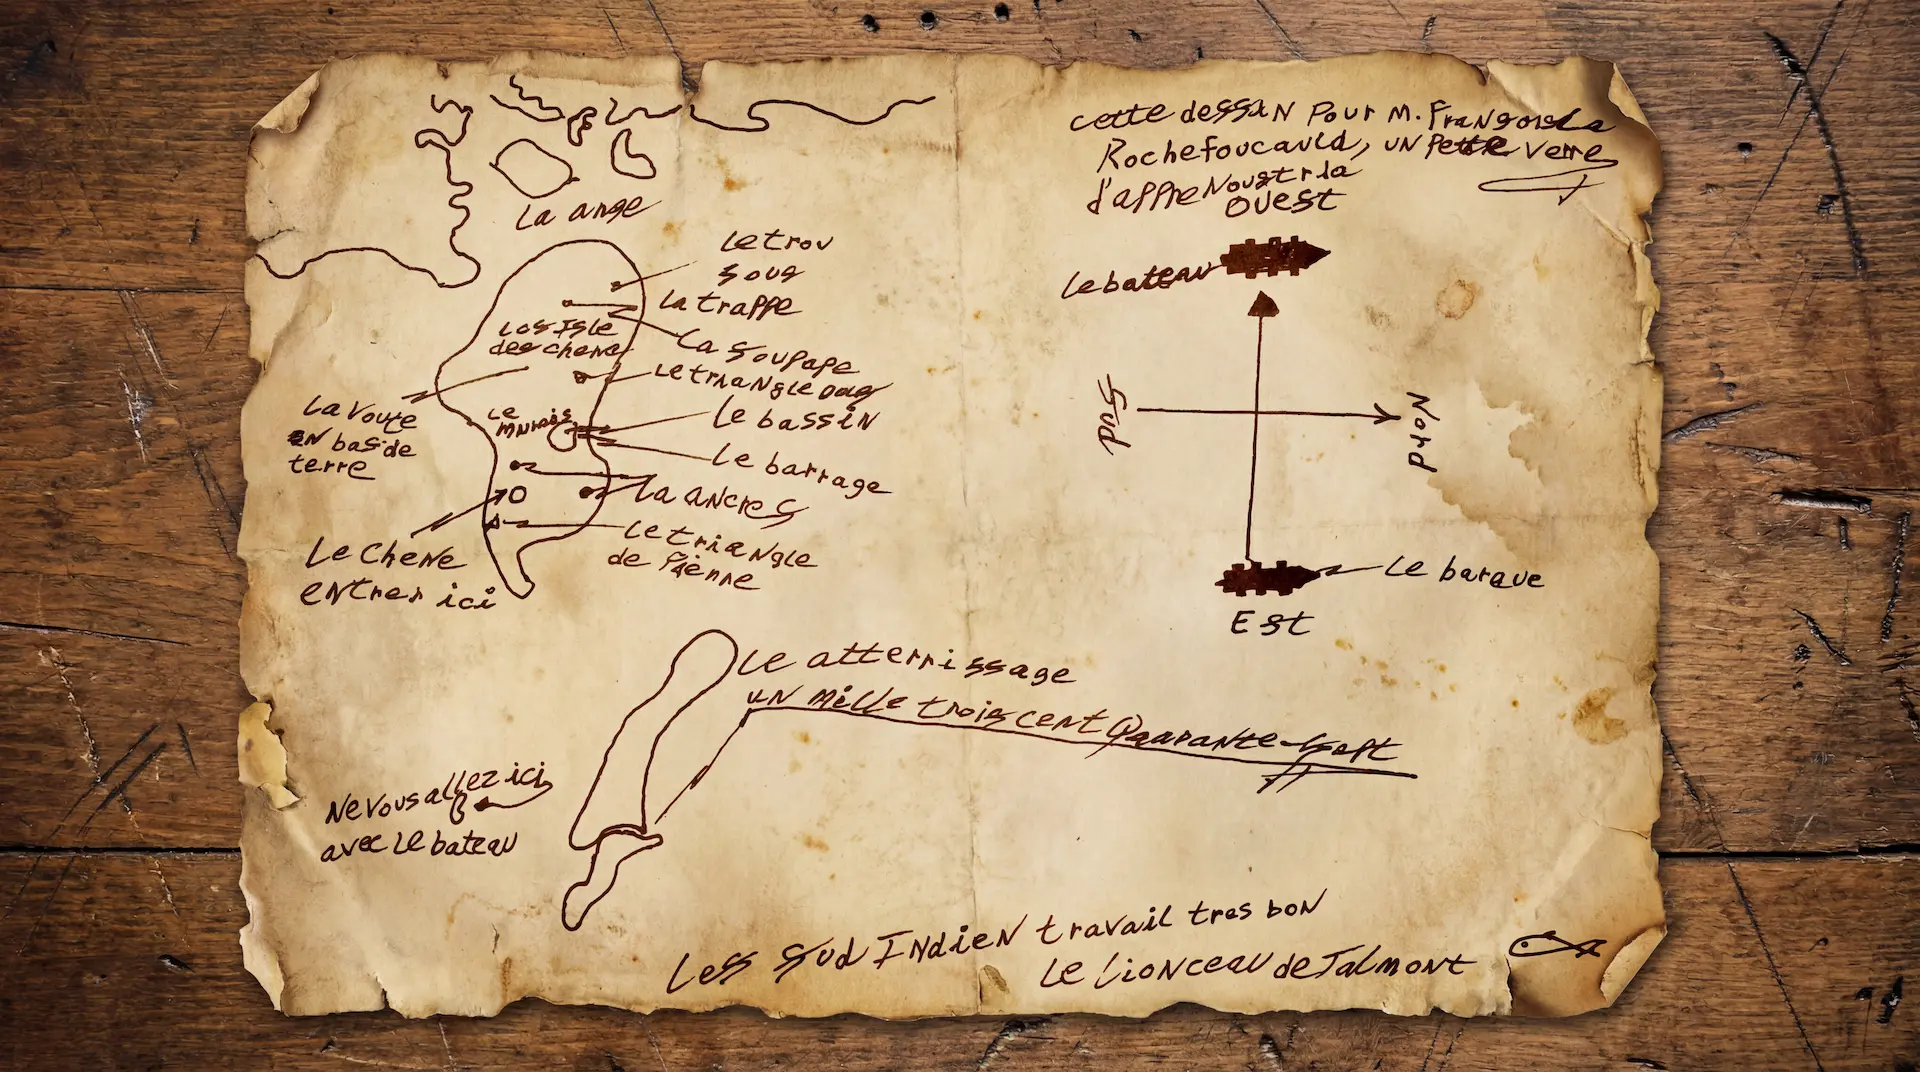 cette dessin Pour M. François La
Rochefoucauld, un Petite verre
d'affre Noustria
Ouest
Le bateau
Sud
Nord
Le baraue
Est
La ange
Le trou
sous
La trappe
La Soupape
Los Isle
des chene
Le triangle oag
Le bassin
Le marais
Le barrage
La voute
en bas de
terre
La ancres
Le triangle
de Pienne
Le Chene
entrer ici
Le atterrissage
un mille trois cent Quarante-Sept
Ne vous allez ici
avec Le bateau
Les Sud Indien travail tres bon
Le Lionceau de Talmont